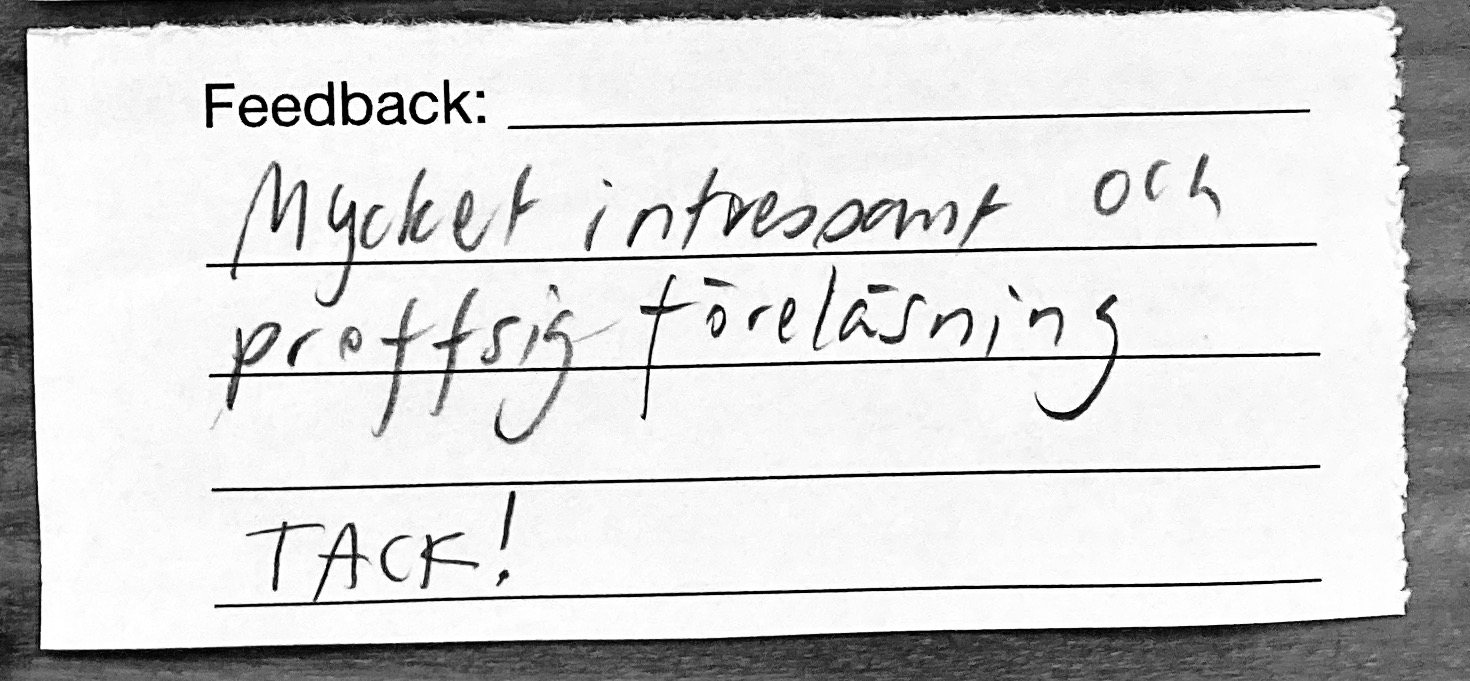 Feedback:
Mycket intressant och
proffsig föreläsning
TACK!